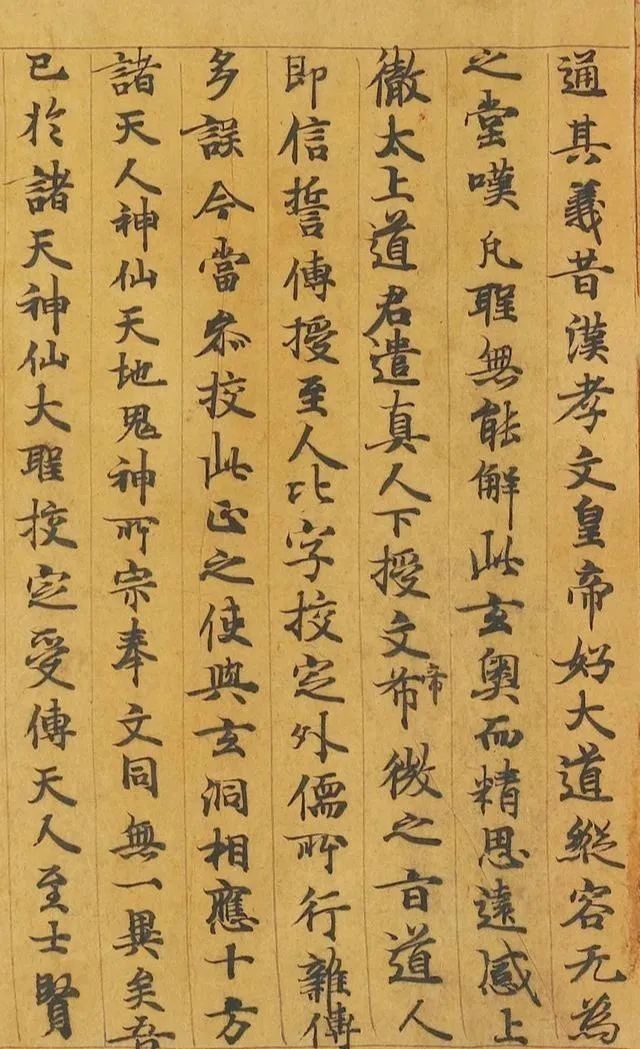 通其義昔漢孝文皇帝好大道縱容无為
之堂嘆凡聖無能解此玄奧而精思遠感上
徹太上道君遣真人下授文希帝微之旨道人
即信誓傳授至人比字挍定外儒所行雜傳
多誤今當叅挍此正之使與玄洞相應十方
諸天人神仙天地鬼神所宗奉文同無一異矣吾
已於諸天神仙大聖挍定受傳天人至士賢